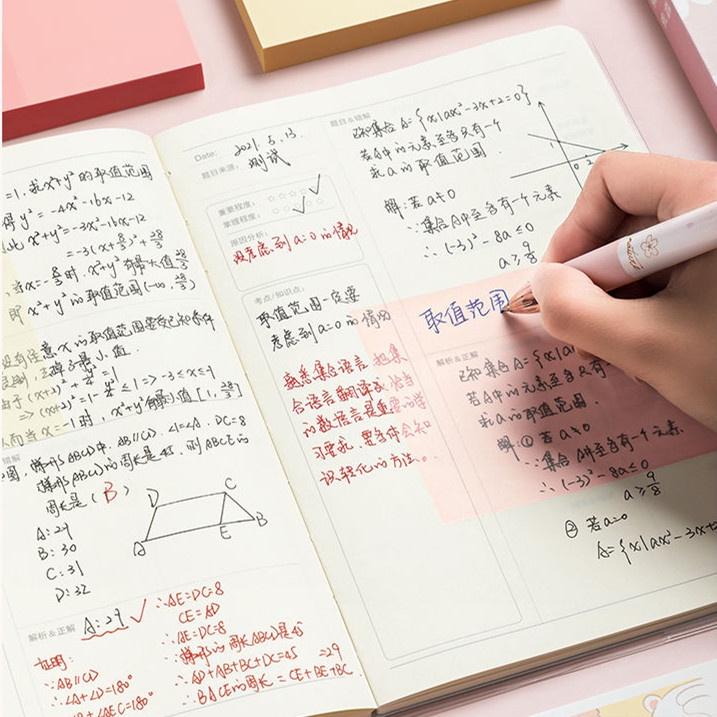 =1,求x²+y²的取值范围
得y²=-4x²-16x-12
此x²+y²=-3x²-16x-12
=-3(x+8/3)²+28/3
当x=-8/3时,x²+y²有最大值28/3
即x²+y²的取值范围(-∞,28/3)
意x的取值范围要受已知条件
=>(x+2)²=1-y²/4≤1=>-3≤x≤-1
从而当x=-1时
x²+y²
[1,28/3]
错解
梯形ABCD中,AB∥CD,∠1=∠A,DC=8
梯形ABCD的周长是45,则△BCE的
周长是(B)
A:29
B:30
C:31
D:32
D
C
A
E
B
解析&正解
A:29
证明:
∵AB∥CD
∴∠A+∠D=180°
∠A+∠AEC=180°
∴AE=DC=8
CE=AD
∴AE=DC=8
∵梯形的周长ABCD是45
∴AD+AB+BC+DC=45
∴BACE的周长=CE+BE+BC
=29
Date:
2021.5.13.
题目来源:
测试
重要程度:☆☆☆☆☆
掌握程度:☆☆☆☆☆
原因分析:
没考虑到a=0的情况
考点/知识点:
取值范围一定要
考虑到a=0的情况
熟悉集合语言,把集
合语言翻译成恰当
的数语言是重要的学
习要求,要学体会知
识转化的方法。
题目&错解
已知集合A={x|ax²-3x+2=0}
若A中的元素至多只有一个
求a的取值范围.
1
0
2
解:若a≠0
∵集合A中至多有一个元素
∴(-3)²-8a≤0
a≥9/8
取值范围
解析&正解
已知集合A={x|a
若A中的元素至多只有一
求a的取值范围.
解:①若a≠0
∵集合A中至多有一个元素.
∴(-3)²-8a≤0
a≥9/8
②若a=0
A={x|ax²-3x+